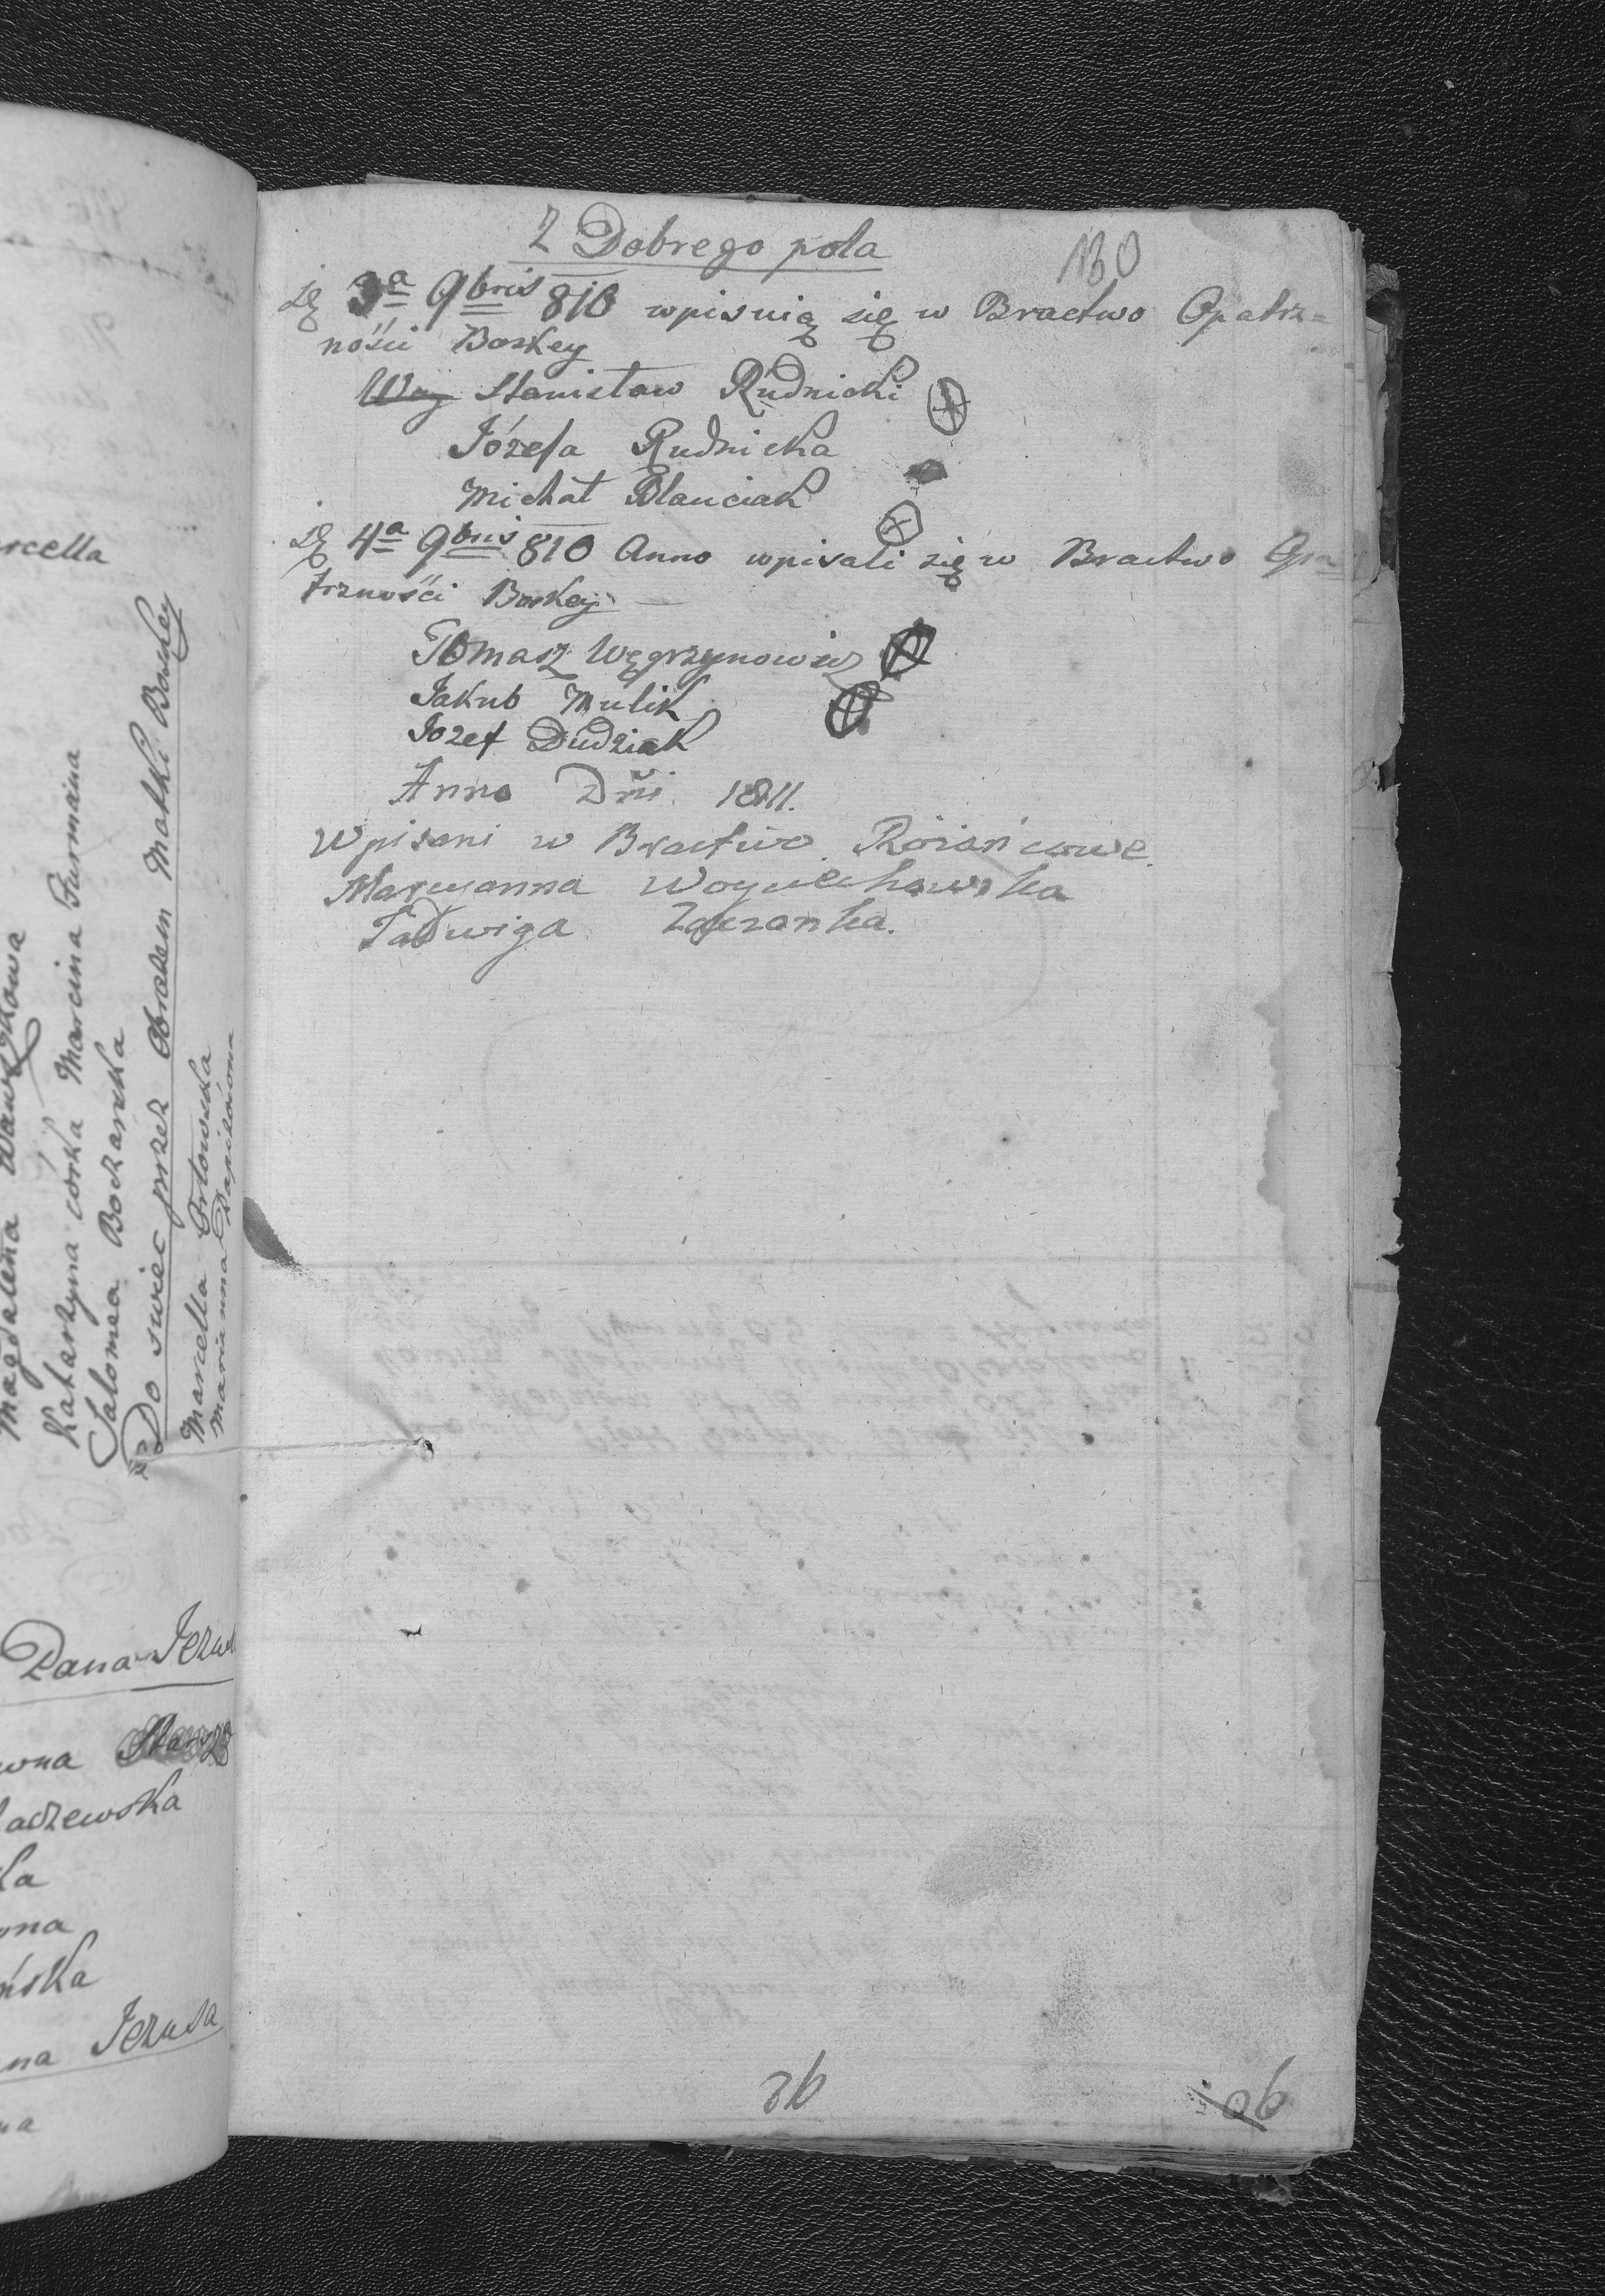 Z Dobrego pola
130
3ª 9bris 810 wpisuią się w Bractwo Opatrz=
ności Boskey
Woy Stanisław Rudnicki
Józefa Rudnicka
Michał Blauciak
4ª 9bris 810 Anno wpisali się w Bractwo Opa=
trzności Boskey
Tomasz Węgrzynowicz
Jakub Mulik
Iozef Dudziak
Anno Dñi 1811.
Wpisani w Bractwo Różańcowe.
Maryanna Woyciechowska
Jadwiga
rcella
Magdalena Wawrzkowa
Katarzyna córka Marcina Furmaina
Salomea Bodarska
Do swiec przez Obrazem Matki Boskey
Marcella Ortowska
Marianna
Pana Jezu
wna
adzewska
ka
ona
ńska
na Jezusa
na